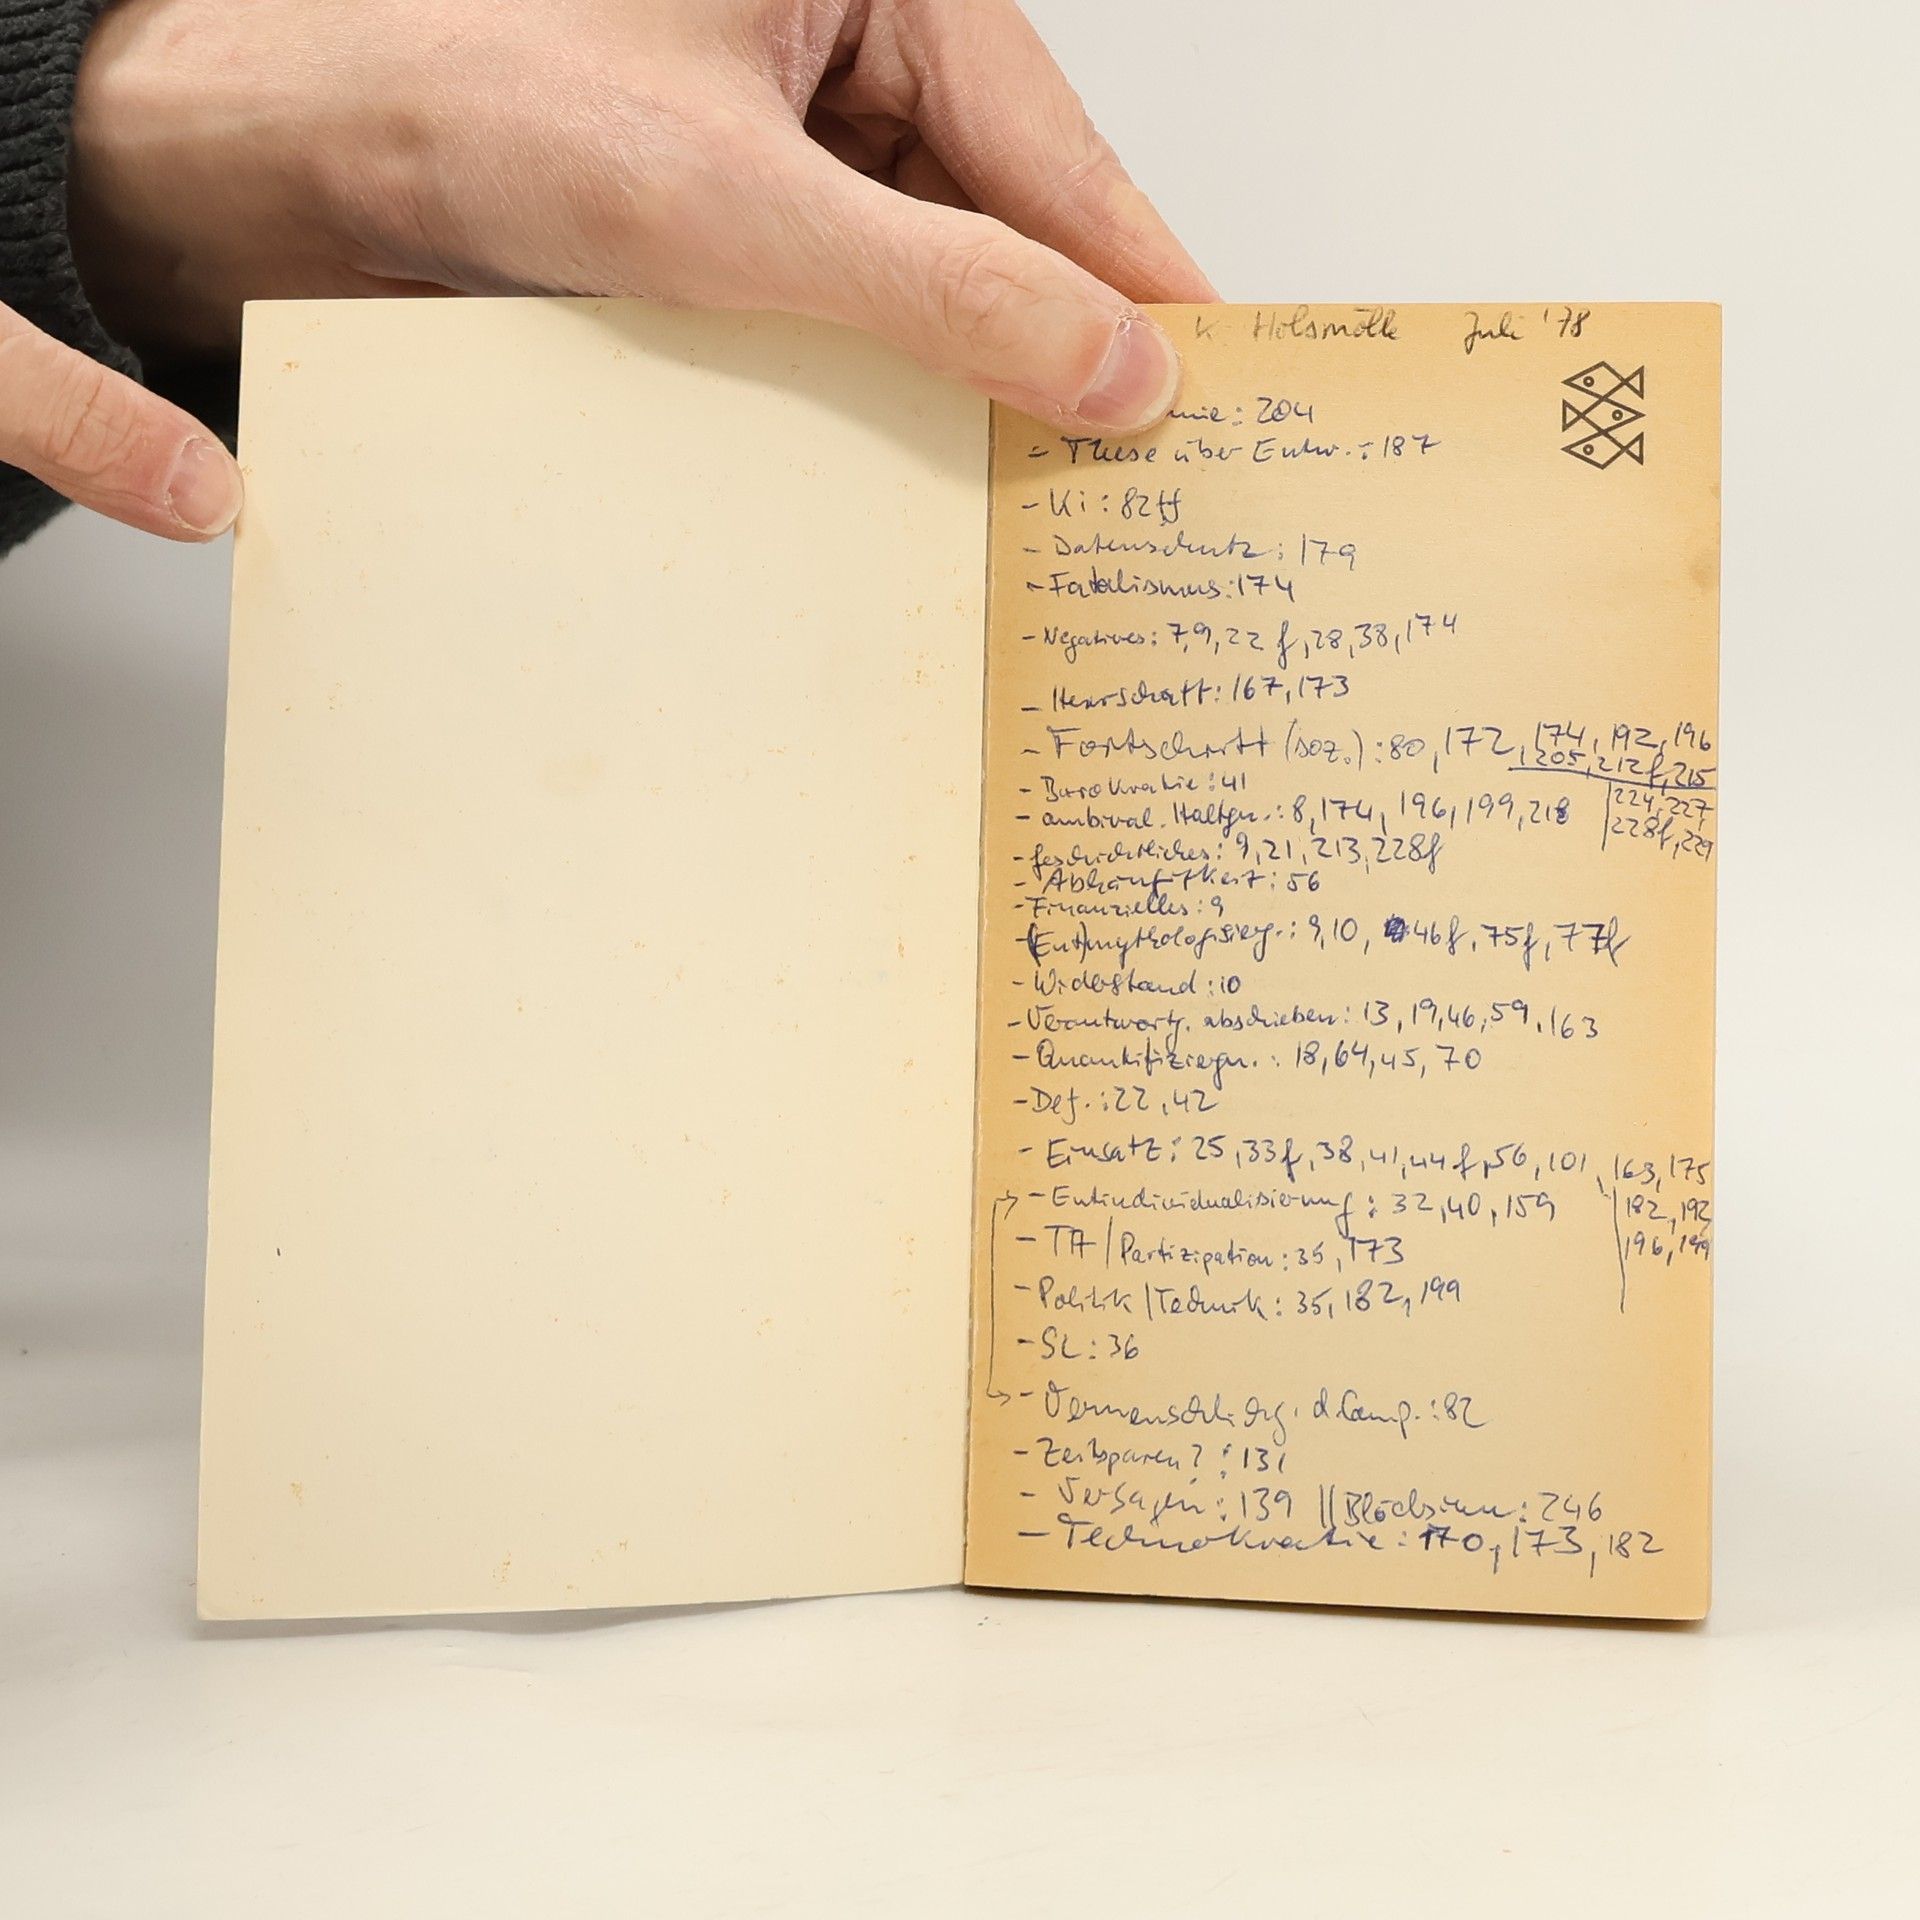 K. Holsmölle Juli '78
mie: 204
- These über Entw.: 187
- Ki: 82ff
- Datenschutz: 179
- Fatalismus: 174
- Negatives: 7,9,22f,28,38,174
- Herrschaft: 167,173
- Fortschritt (soz.): 80,172,174,192,196
,205,212f,215
224,227,
228f,229
- Bürokratie: 41
- ambival. Haltgn.: 8,174,196,199,218
- geschichtliches: 9,21,213,228f
- Abhängigkeit: 56
- Finanzielles: 9
- (Ent)mythologisierg.: 9,10, 46f,75f,77f
- Widerstand: 10
- Verantwortg. abschieben: 13,19,46,59,163
- Quantifiziergn.: 18,64,45,70
- Def.: 22,42
- Einsatz: 25,33f,38,41,44f,56,101,163,175
182,192
196,199
- Entindividualisierung: 32,40,159
- TA/Partizipation: 35,173
- Politik/Technik: 35,182,199
- SL: 36
- Vermenschlichg. d. Comp.: 82
- Zeitsparen?: 131
- Versagen: 139 || Blödsinn: 246
- Technokratie: 170,173,182